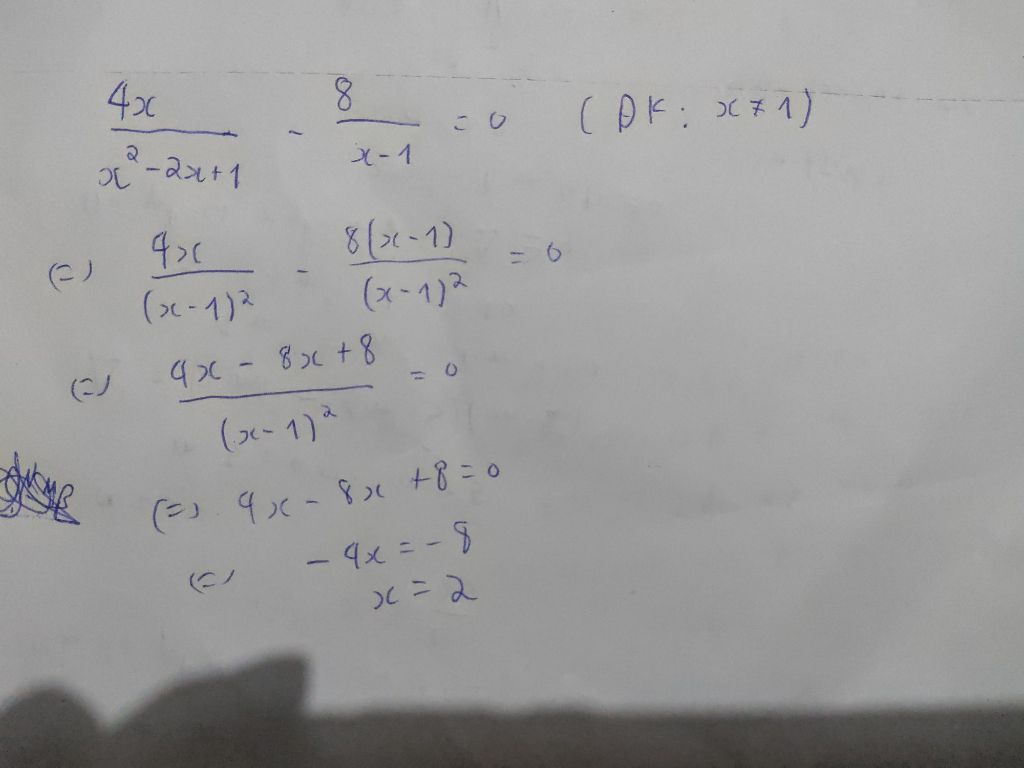 4x/(x²-2x+1) - 8/(x-1) = 0 (ĐK: x≠1)
(=) 4x/(x-1)² - 8(x-1)/(x-1)² = 0
(=) (4x - 8x + 8)/(x-1)² = 0
(=) 4x - 8x + 8 = 0
(=) -4x = -8
x = 2